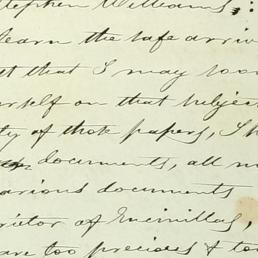 Stephen Williams,
learn the safe arriv
et that I may soon
urself on that subjec
ty of those papers, I h
documents, all m
arious documents
rietor of Encinillas,
are too precious & too